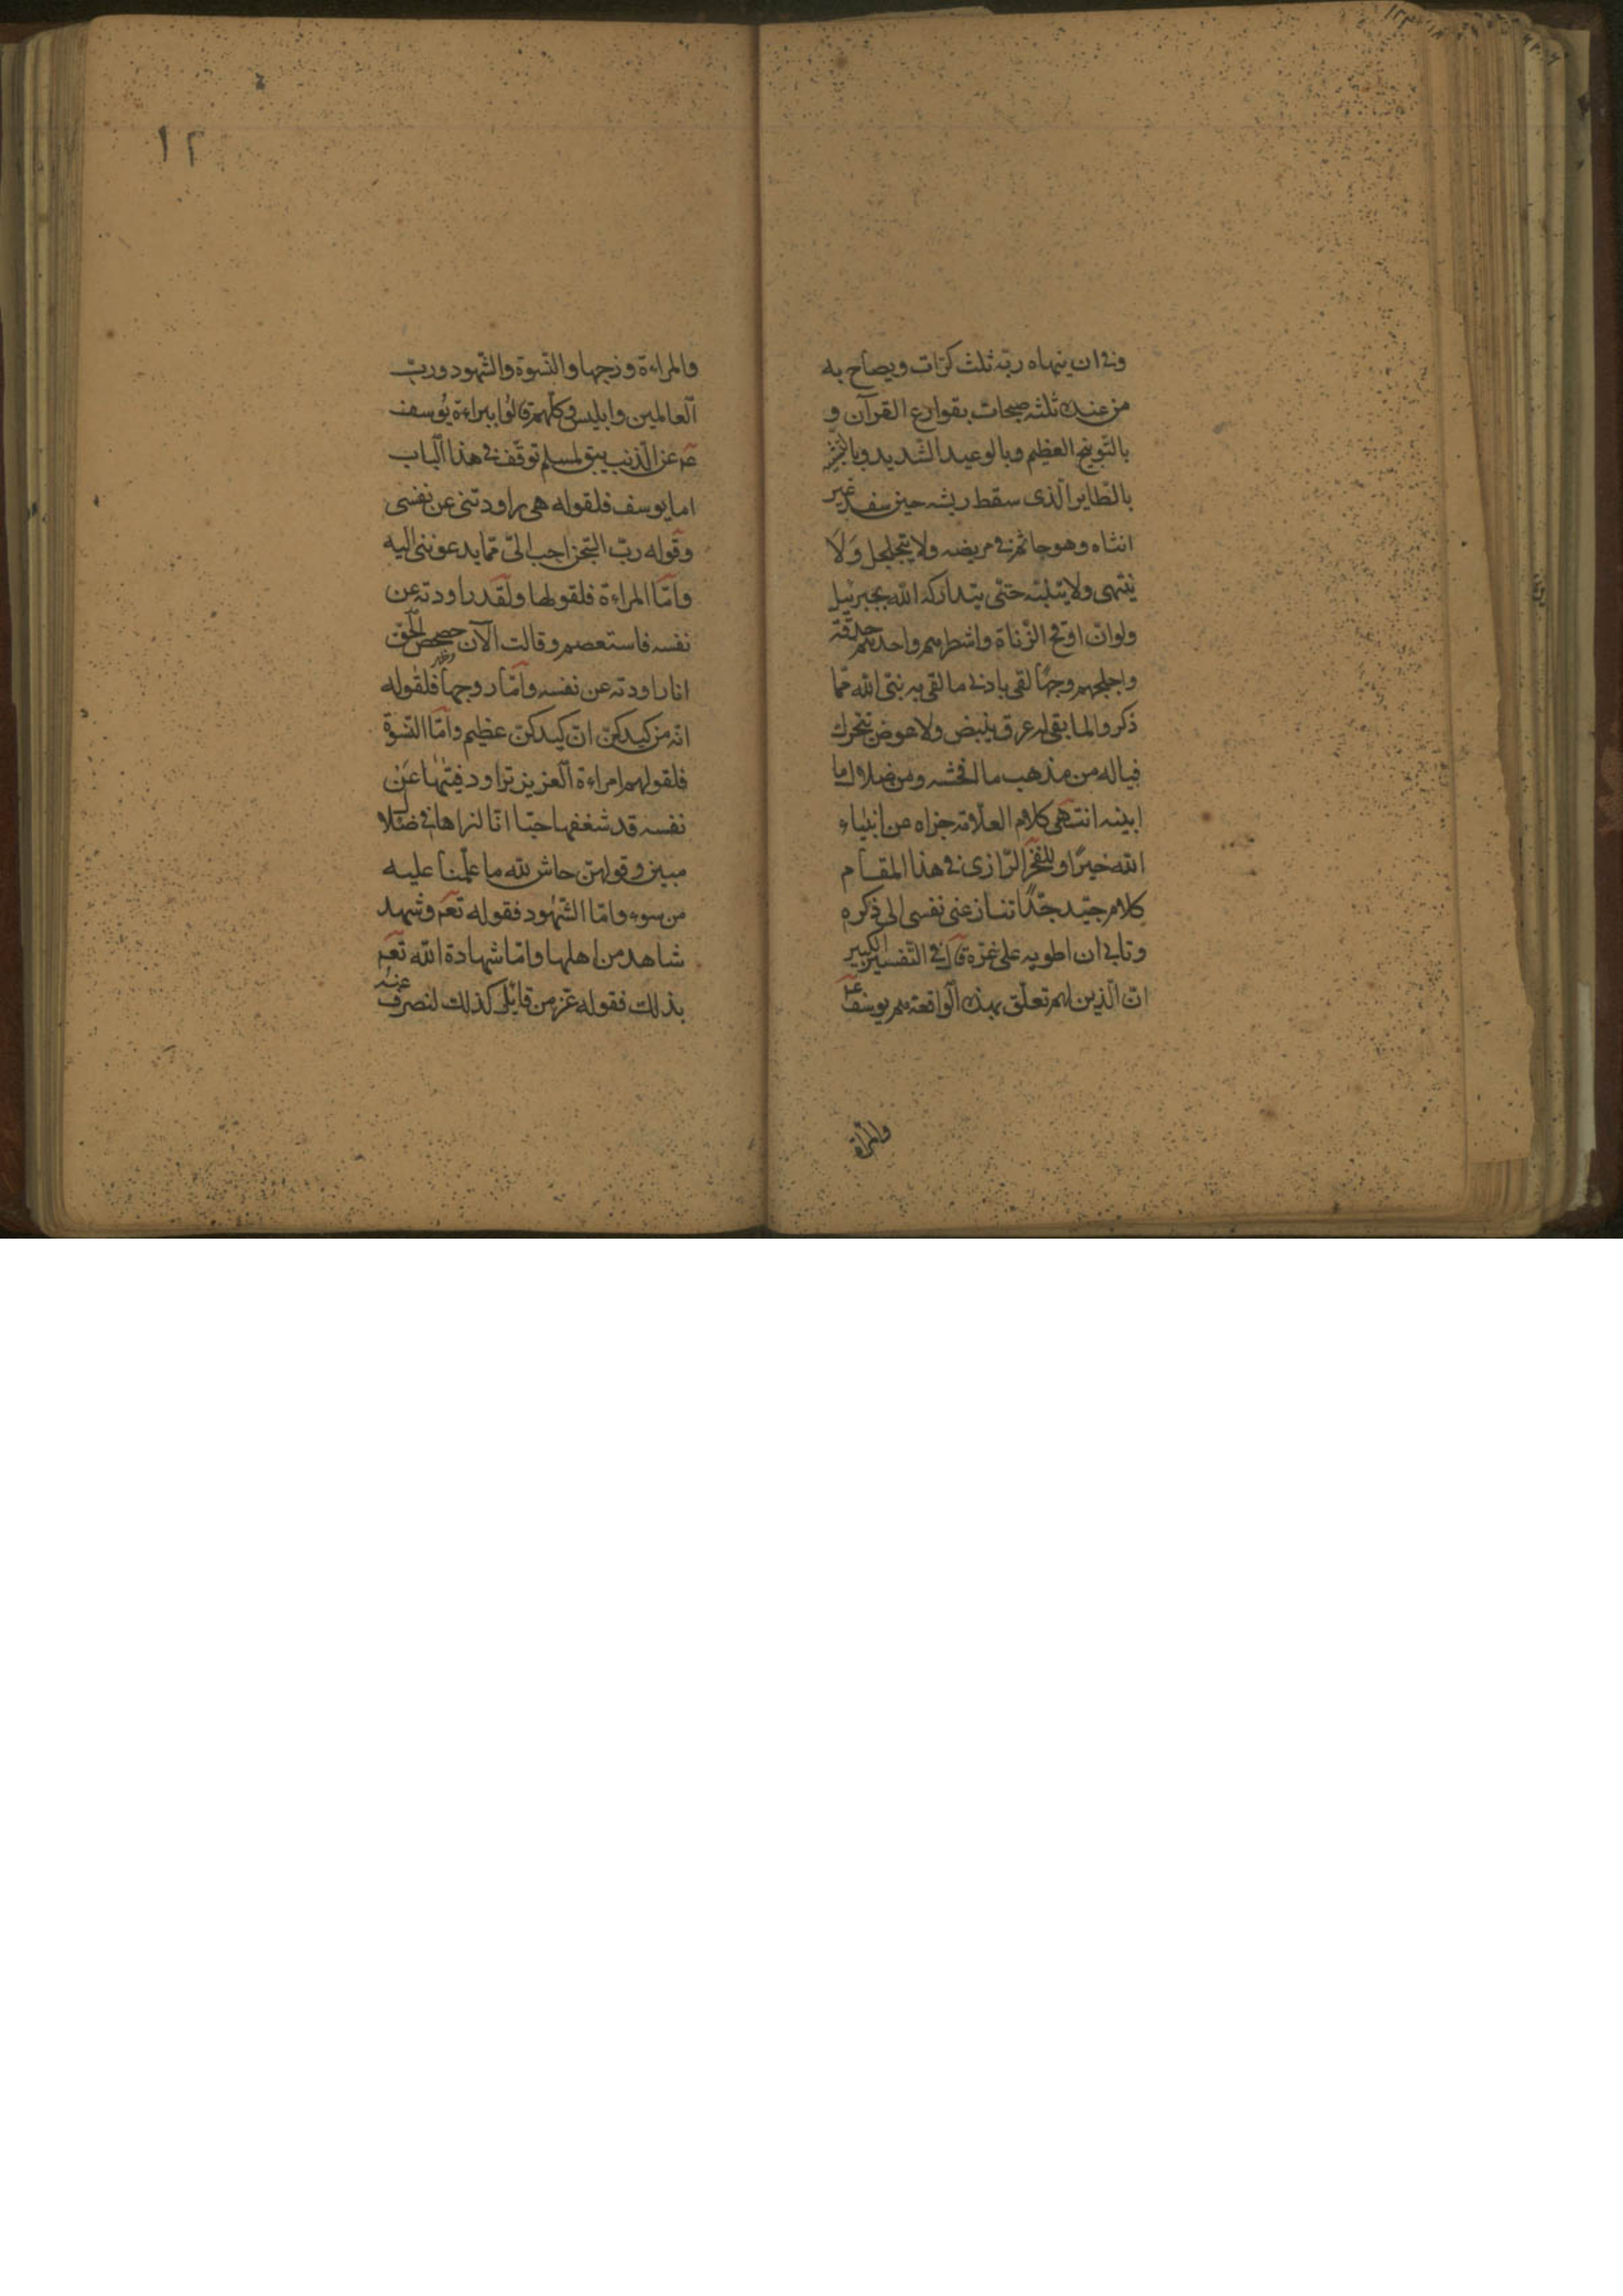 وفى ان ينهاه ربّه ثلث كرّات ويصاح به
من عنده ثلثه صيحات بقوارع القرآن و
بالتّوبيخ العظيم وبالوعيد الشّديد وبا
بالطّاير الّذى سقط ريشه حين سفد غير
انثاه وهو جاثم فى مربضه ولا يتجلجل ولا
ينتهى ولا ينتبه حتّى يتداركه الله بجبرئيل
ولو انّ اوقح الزّناة واشطرهم واحدهم حدقة
واجلحهم وجهًا لقى بادنى ما لقى به نبىّ الله ممّا
ذكروا لما بقى له عرق ينبض ولا عضو يتحرك
فياله من مذهب ما افحشه ومن ضلال ما
ابينه انتهى كلام العلّامة جزاه عن انبياء
الله خيرًا وللفخر الرّازى فى هذا المقام
كلام جيّد جدًّا تنازعنى نفسى الى ذكره
وتابى ان اطويه على غرّه قال فى التّفسير الكبير
انّ الّذين لهم تعلّق بهذه الواقعة هم يوسف عم
والمرأة
١٢
والمراءة وزوجها والنّسوة والشّهود وربّ
العالمين وابليس وكلّهم قالوا ببراءة يوسف
عم عن الذنب يبق لمسلم توقّف فى هذا الباب
اما يوسف فلقوله هى راودتنى عن نفسى
وقوله ربّ السّجن احب الىّ ممّا يدعوننى اليه
وامّا المراءة فلقولها ولقد راودته عن
نفسه فاستعصم وقالت الآن حصحص الحق
انا راودته عن نفسه وامّا زوجها فلقوله
انّه من كيدكنّ انّ كيدكنّ عظيم وامّا النّسوة
فلقولهم امراءة العزيز تراود فتيها عن
نفسه قد شغفها حبّا انّا لنراها فى ضلال
مبين وقولهنّ حاش لله ما علمنا عليه
من سوء وامّا الشّهود فقوله تعم وشهد
شاهد من اهلها وامّا شهادة الله تعم
بذلك فقوله عزّ من قائل كذلك لنصرف عنه